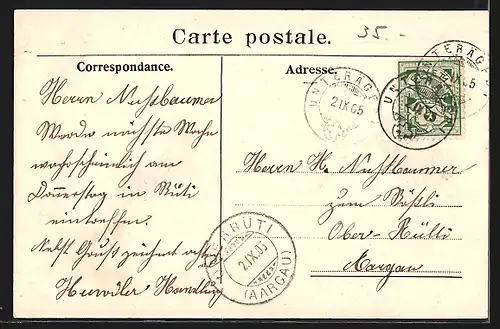 35.-
Carte postale.
Correspondance.
Adresse.
UNTERÄGERI
2 IX 05
UNTERÄGERI
Herrn Nussbaumer
Werde nächste Woche
wahrscheinlich am
Donnerstag in Rüti
eintreffen.
Nebst Gruss zeichnet
Huwiler Handlung
Herrn H. Nussbaumer
zum Rössli
Ober-Rüti
Aargau
RÜTI
2 IX 05
(AARGAU)